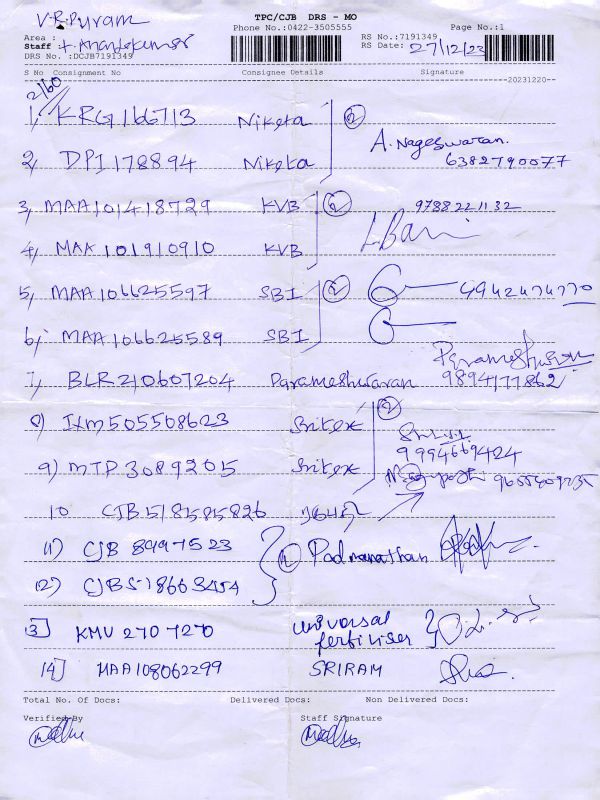 TPC/CJB DRS - MO
V.R.Puram
Phone No.:0422-3505555
Page No.:1
Area :
RS No.:7191349
Staff :
RS Date: 27/12/23
DRS No. :DCJB7191349
S No Consignment No Consignee Details Signature
20231220--
2160
1, KRG166713 Niketa 2 A. Nageswaran.
6382790077
2, DPI 178894 Niketa
3, MAA101418729 KVB 2 9788221132
4, MAA 101910910 KVB
5, MAA106625597 SBI 2 9942474770
6, MAA106625589 SBI
Parameshwaran
7, BLR210607204 Parameshwaran 9894177862
8) IXM505508623 Sritex 2
9994669424
9) MTP3089205 Sritex
10 CJB518585826
11) CJB 8997523 2 Padmanathan
12) CJB518663454
13] KMU 2707270 universal
fertiliser
14] MAA108062299 SRIRAM
Total No. Of Docs: Delivered Docs: Non Delivered Docs:
Verified By Staff Signature